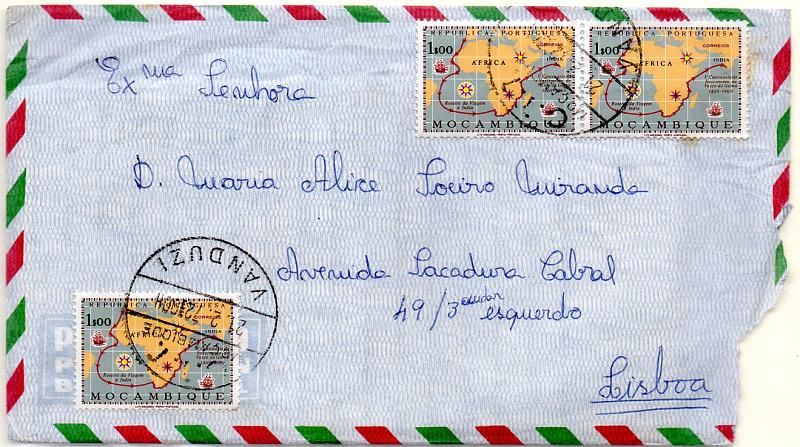 REPÚBLICA PORTUGUESA
1$00
CORREIOS
ÁFRICA
INDIA
V Centenário do
nascimento de
Vasco da Gama
1469-1969
Roteiro da Viagem
à India
MOÇAMBIQUE
REPÚBLICA PORTUGUESA
1$00
CORREIOS
ÁFRICA
INDIA
V Centenário do
nascimento de
Vasco da Gama
1469-1969
Roteiro da Viagem
à India
MOÇAMBIQUE
Exma Senhora
D. Maria Alice Loeiro Miranda
Avenida Sacadura Cabral
49/3º andar esquerdo
Lisboa
VANDUZI
MOÇAMBIQUE
REPÚBLICA PORTUGUESA
1$00
CORREIOS
ÁFRICA
INDIA
Roteiro da Viagem
à India
MOÇAMBIQUE